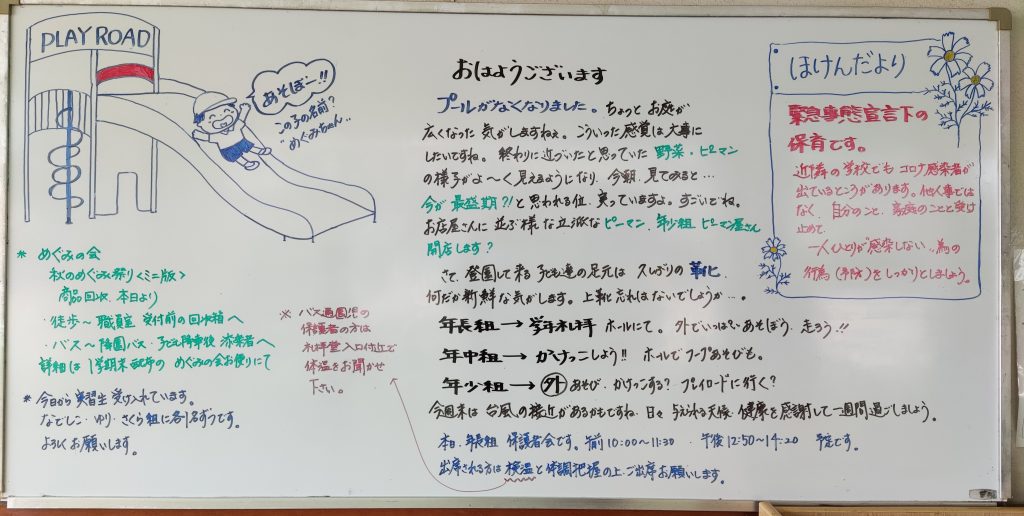 PLAY ROAD
あそぼー!!
この子の名前?
"めぐみちゃん"
* めぐみの会
秋のめぐみ祭り<ミニ版>
商品回収 本日より
・徒歩〜職員室 受付前の回収箱へ
・バス〜降園バス・子ども降車後 添乗者へ
詳細は 1学期末配布の めぐみの会お便りにて
* 今日から実習生 受け入れています。
なでしこ・ゆり・さくら組に各1名ずつです。
よろしくお願いします。
※ バス通園児の
保護者の方は
礼拝堂入口付近で
体温をお聞かせ
下さい。
おはようございます
プールがなくなりました。ちょっとお庭が
広くなった気がしますねぇ。こういった感覚は大事に
したいですね。終わりに近づいたと思っていた 野菜・ピーマン
の様子がよ〜く見えるようになり、今朝、見てみると…
今が最盛期?!と思われる位、実っていますよ。すごいでね。
お店屋さんに並ぶ様な立派なピーマン、年少組 ピーマン屋さん
開店します?
さて、登園して来る子ども達の足元は久しぶりの 革靴
何だか新鮮な気がします。上靴忘れはないでしょうか…。
年長組→学年礼拝 ホールにて。外でいっぱいあそぼう、走ろう!!
年中組→かけっこしよう!! ホールでフープあそびも。
年少組→外あそび・かけっこする? プレイロードに行く?
今週末は台風の接近があるかもですね・日々与えられる天候、健康を感謝して一週間過ごしましょう。
本日、年長組 保護者会です。午前10:00〜11:30 ・ 午後12:50〜14:20 予定です。
出席される方は検温と体調把握の上、ご出席お願いします。
ほけんだより
緊急事態宣言下の
保育です。
近隣の学校でもコロナ感染者が
出ているところがあります。他人事では
なく、自分のこと、家庭のことと受け
止めて、
一人ひとりが"感染しない"為の
行為(予防)をしっかりとしましょう。